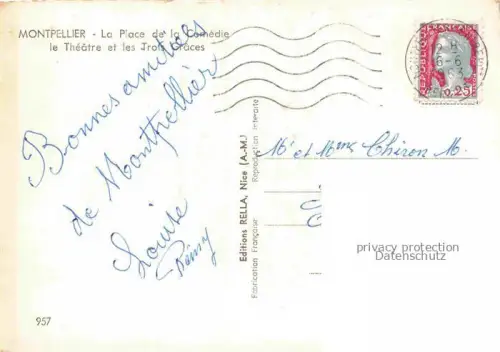 MONTPELLIER - La Place de la Comédie
le Théâtre et les Trois Grâces
Bonnes amitiés
de Montpellier
Louise
Rémy
957
Editions RELLA, Nice (A.-M.)
Fabrication Française Reproduction Interdite
REPUBLIQUE FRANÇAISE
0,25
M. et Mme Chiron M.
privacy protection
Datenschutz